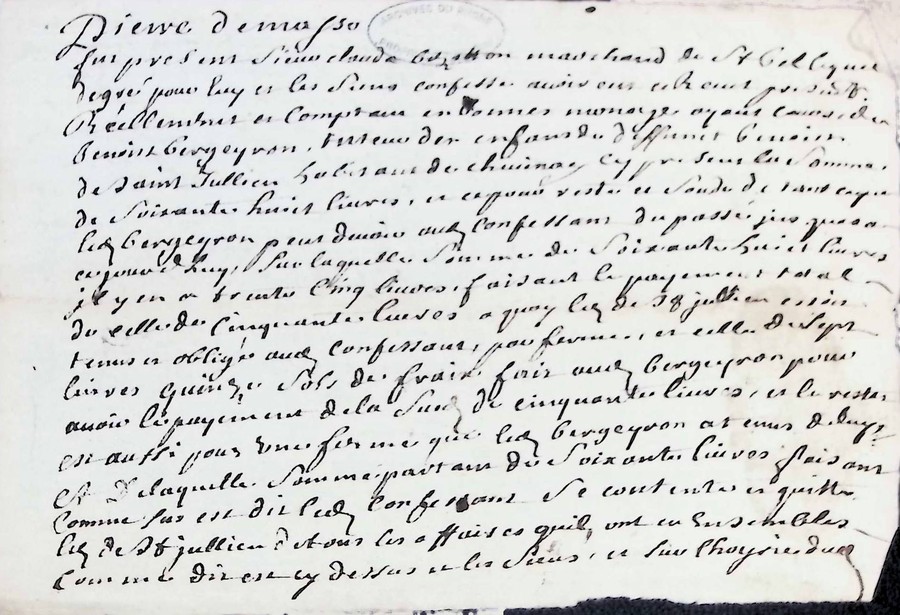 Pierre demasso
ARCHIVES DU RHÔNE
fut present Sieur claude marchand de St bel lequel
de gré pour luy et les Siens confesse avoir eu et Receu presentt
Reellement et Comptant en bonnes monoyes ayant cours de
benoist bergeyron, tuteur des enfans de deffunct benoist
de Saint Jullien habitant de chevinay cy present la Somme
de Soixante huict livres, et ce pour reste et Solde de tout ce que
led bergeyron peut devoir aud confessant du passé jusques a
ce jourdhuy, Sur laquelle Somme de Soixante huict livres
il y en a trente Cinq livres faisant le payement total
de celle de Cinquante livres a quoy led de St jullien estoit
tenu et obligé aud confessant, pour ferme, et celle de Sept
livres quinze Sols de frais fait aud bergeyron pour
avoir le payement de la Sud de cinquante livres, et le reste
est aussi pour une ferme que led bergeyron a tenus de luy
Et de laquelle Somme partant de Soixante livres faisant
Comme sus est dit led Confessant Se contente et quitte
led de St jullien de tous les affaires quilz ont eu Ensembles
Comme dit est cy dessus et les Siens, et Sur lhoyrie dud